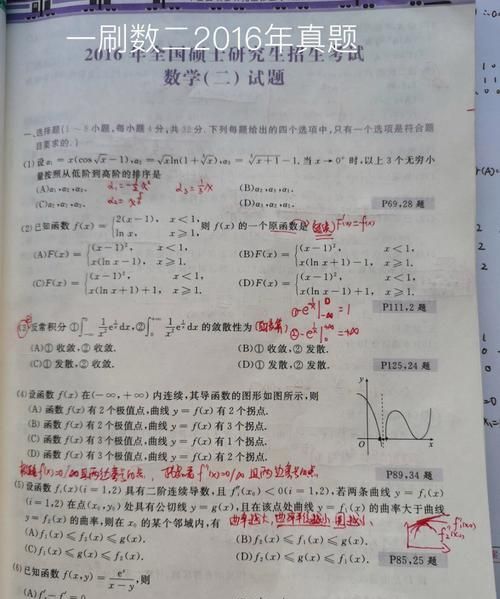 一刷数二2016年真题
2016年全国硕士研究生招生考试
数学(二)试题
一、选择题(1~8小题,每小题4分,共32分.下列每题给出的四个选项中,只有一个选项是符合题
目要求的.)
(1)设α₁=x(cos√x-1),α₂=√xln(1+∛x),α₃=∛(x+1)-1.当x→0⁺时,以上3个无穷小
量按照从低阶到高阶的排序是
(A)α₁,α₂,α₃.
(B)α₂,α₃,α₁.
(D)α₃,α₂,α₁.
P69,28题
(2)已知函数f(x)={2(x-1), x<1, ln x, x≥1,则f(x)的一个原函数是 F'(x)=f(x)
(A)F(x)={(x-1)², x<1, x(ln x-1), x≥1.
(B)F(x)={(x-1)², x<1, x(ln x+1)-1, x≥1.
(C)F(x)={(x-1)², x<1, x(ln x+1)+1, x≥1.
(D)F(x)={(x-1)², x<1, x(ln x-1)+1, x≥1.
P111,2题
(3)反常积分①∫₋∞⁰ 1/x² e^(1/x)dx,②∫₀^(+∞) 1/x² e^(1/x)dx的敛散性为
(A)①收敛,②收敛.
(B)①收敛,②发散.
(C)①发散,②收敛.
(D)①发散,②发散.
P125,24题
(4)设函数f(x)在(-∞,+∞)内连续,其导函数的图形如图所示,则
(A)函数f(x)有2个极值点,曲线y=f(x)有2个拐点.
(B)函数f(x)有2个极值点,曲线y=f(x)有3个拐点.
(C)函数f(x)有3个极值点,曲线y=f(x)有1个拐点.
(D)函数f(x)有3个极值点,曲线y=f(x)有2个拐点.
y
O
x
P89,34题
(5)设函数fᵢ(x)(i=1,2)具有二阶连续导数,且fᵢ''(x₀)<0(i=1,2),若两条曲线y=fᵢ(x)
(i=1,2)在点(x₀,y₀)处具有公切线y=g(x),且在该点处曲线y=f₁(x)的曲率大于曲线
y=f₂(x)的曲率,则在x₀的某个邻域内,有
(A)f₁(x)≤f₂(x)≤g(x).
(B)f₂(x)≤f₁(x)≤g(x).
(C)f₁(x)≤g(x)≤f₂(x).
(D)f₂(x)≤g(x)≤f₁(x).
P85,25题
(6)已知函数f(x,y)=eˣ/(x-y),则